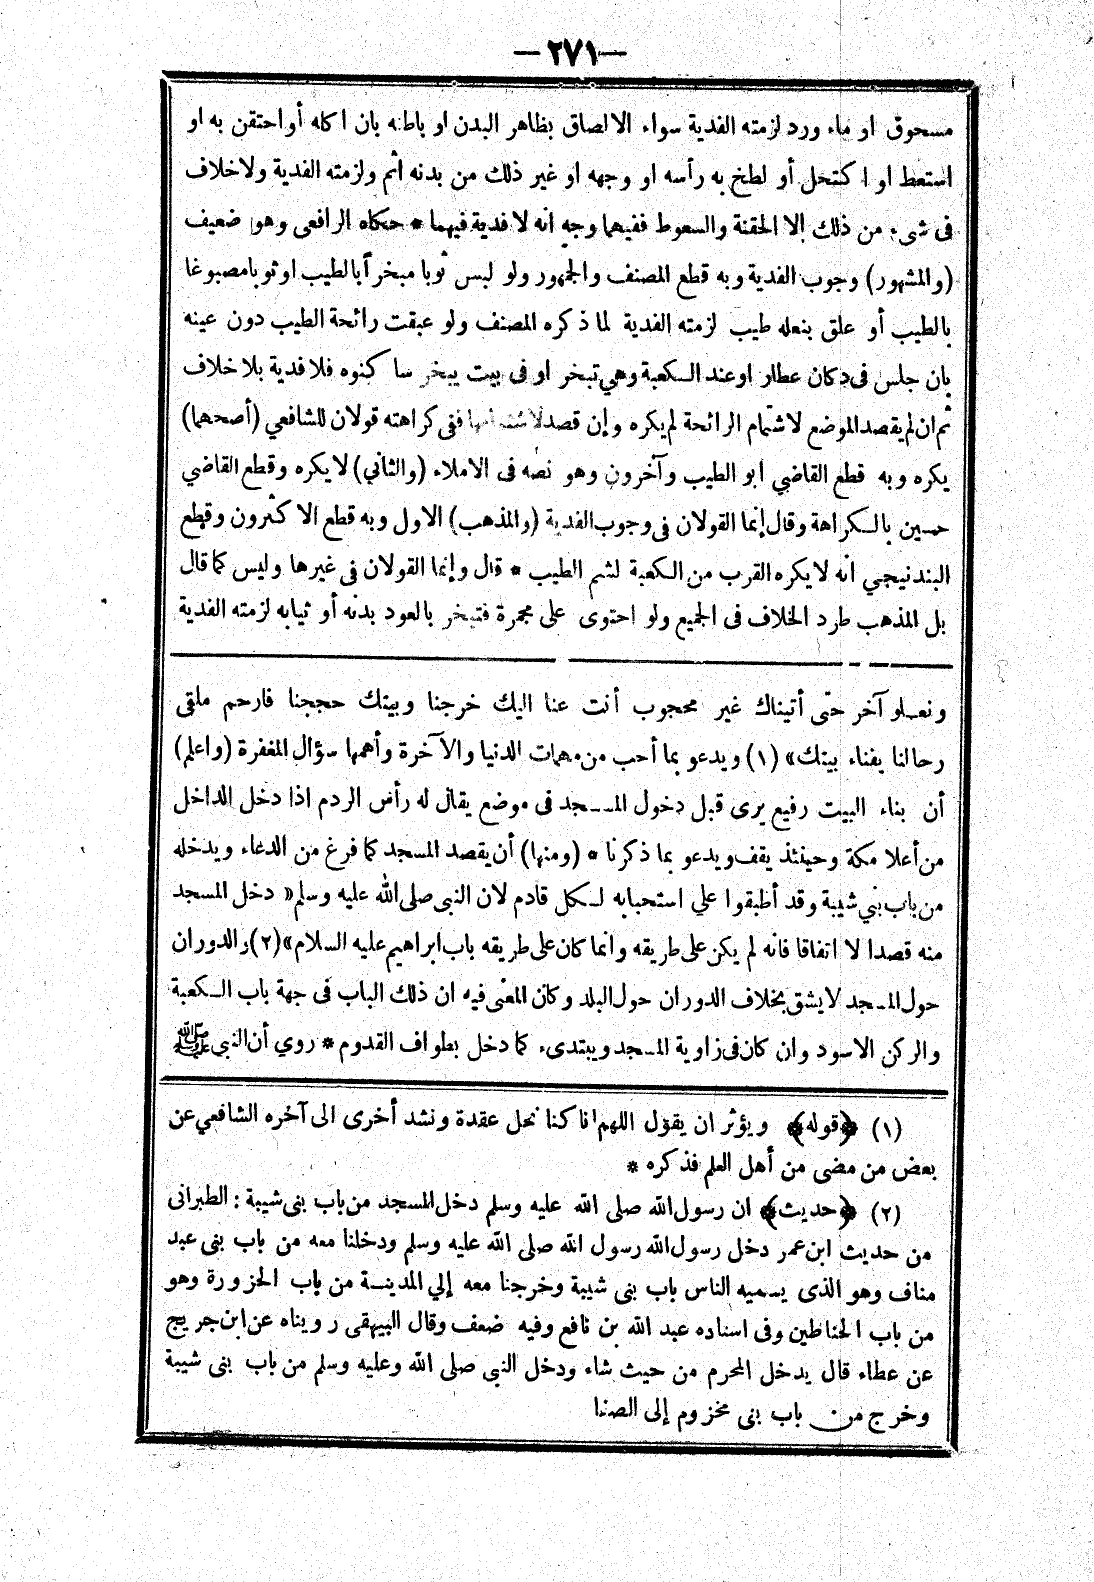 — ٢٧١ —
مسحوق او ماء ورد لزمته الفدية سواء الالصاق بظاهر البدن او باطنه بان اكله أو احتقن به او
استعط او اكتحل أو لطخ به رأسه او وجهه او غير ذلك من بدنه اثم ولزمته الفدية ولا خلاف
فى شىء من ذلك إلا الحقنة والسعوط ففيهما وجه انه لا فدية فيهما * حكاه الرافعى وهو ضعيف
(والمشهور) وجوب الفدية وبه قطع المصنف والجمهور ولو لبس ثوبا مبخرا بالطيب او ثوبا مصبوغا
بالطيب أو علق بنعله طيب لزمته الفدية لما ذكره المصنف ولو عبقت رائحة الطيب دون عينه
بان جلس فى دكان عطار او عند الكعبة وهي تبخر او فى بيت يبخر ساكنوه فلا فدية بلا خلاف
ثم ان لم يقصد الموضع لاشتمام الرائحة لم يكره وإن قصد لاشتمامها ففى كراهته قولان للشافعي (أصحهما)
يكره وبه قطع القاضي ابو الطيب وآخرون وهو نصه فى الاملاء (والثاني) لا يكره وقطع القاضي
حسين بالكراهة وقال إنما القولان فى وجوب الفدية (والمذهب) الاول وبه قطع الاكثرون وقطع
البندنيجي انه لا يكره القرب من الكعبة لشم الطيب * قال وإنما القولان فى غيرها وليس كما قال
بل المذهب طرد الخلاف فى الجميع ولو احتوى على مجمرة فتبخر بالعود بدنه أو ثيابه لزمته الفدية
ونعلو آخر حتى أتيناك غير محجوب أنت عنا اليك خرجنا وبيتك حججنا فارحم ملقى
رحالنا بفناء بيتك» (١) ويدعو بما أحب من مهمات الدنيا والآخرة وأهمها سؤال المغفرة (واعلم)
أن بناء البيت رفيع يرى قبل دخول المسجد فى موضع يقال له رأس الردم اذا دخل الداخل
من أعلا مكة وحينئذ يقف ويدعو بما ذكرنا * (ومنها) أن يقصد المسجد كما فرغ من الدعاء ويدخله
من باب بني شيبة وقد أطبقوا علي استحبابه لكل قادم لان النبى صلى الله عليه وسلم « دخل المسجد
منه قصدا لا اتفاقا فانه لم يكن على طريقه وانما كان على طريقه باب ابراهيم عليه السلام» (٢) والدوران
حول المسجد لا يشق بخلاف الدوران حول البلد وكان المعنى فيه ان ذلك الباب فى جهة باب الكعبة
والركن الاسود وان كان فى زاوية المسجد ويبتدىء كما دخل بطواف القدوم * روي أن النبى ﷺ
(١) ﴿قوله﴾ ويؤثر ان يقول اللهم انا كنا نحل عقدة ونشد أخرى الى آخره الشافعي عن
بعض من مضى من أهل العلم فذكره *
(٢) ﴿حديث﴾ ان رسول الله صلى الله عليه وسلم دخل المسجد من باب بنى شيبة : الطبرانى
من حديث ابن عمر دخل رسول الله رسول الله صلى الله عليه وسلم ودخلنا معه من باب بنى عبد
مناف وهو الذى يسميه الناس باب بنى شيبة وخرجنا معه إلي المدينة من باب الحزورة وهو
من باب الحناطين وفى اسناده عبد الله بن نافع وفيه ضعف وقال البيهقى رويناه عن ابن جريج
عن عطاء قال يدخل المحرم من حيث شاء ودخل النبى صلى الله وعليه وسلم من باب بنى شيبة
وخرج من باب بنى مخزوم إلى الصفا